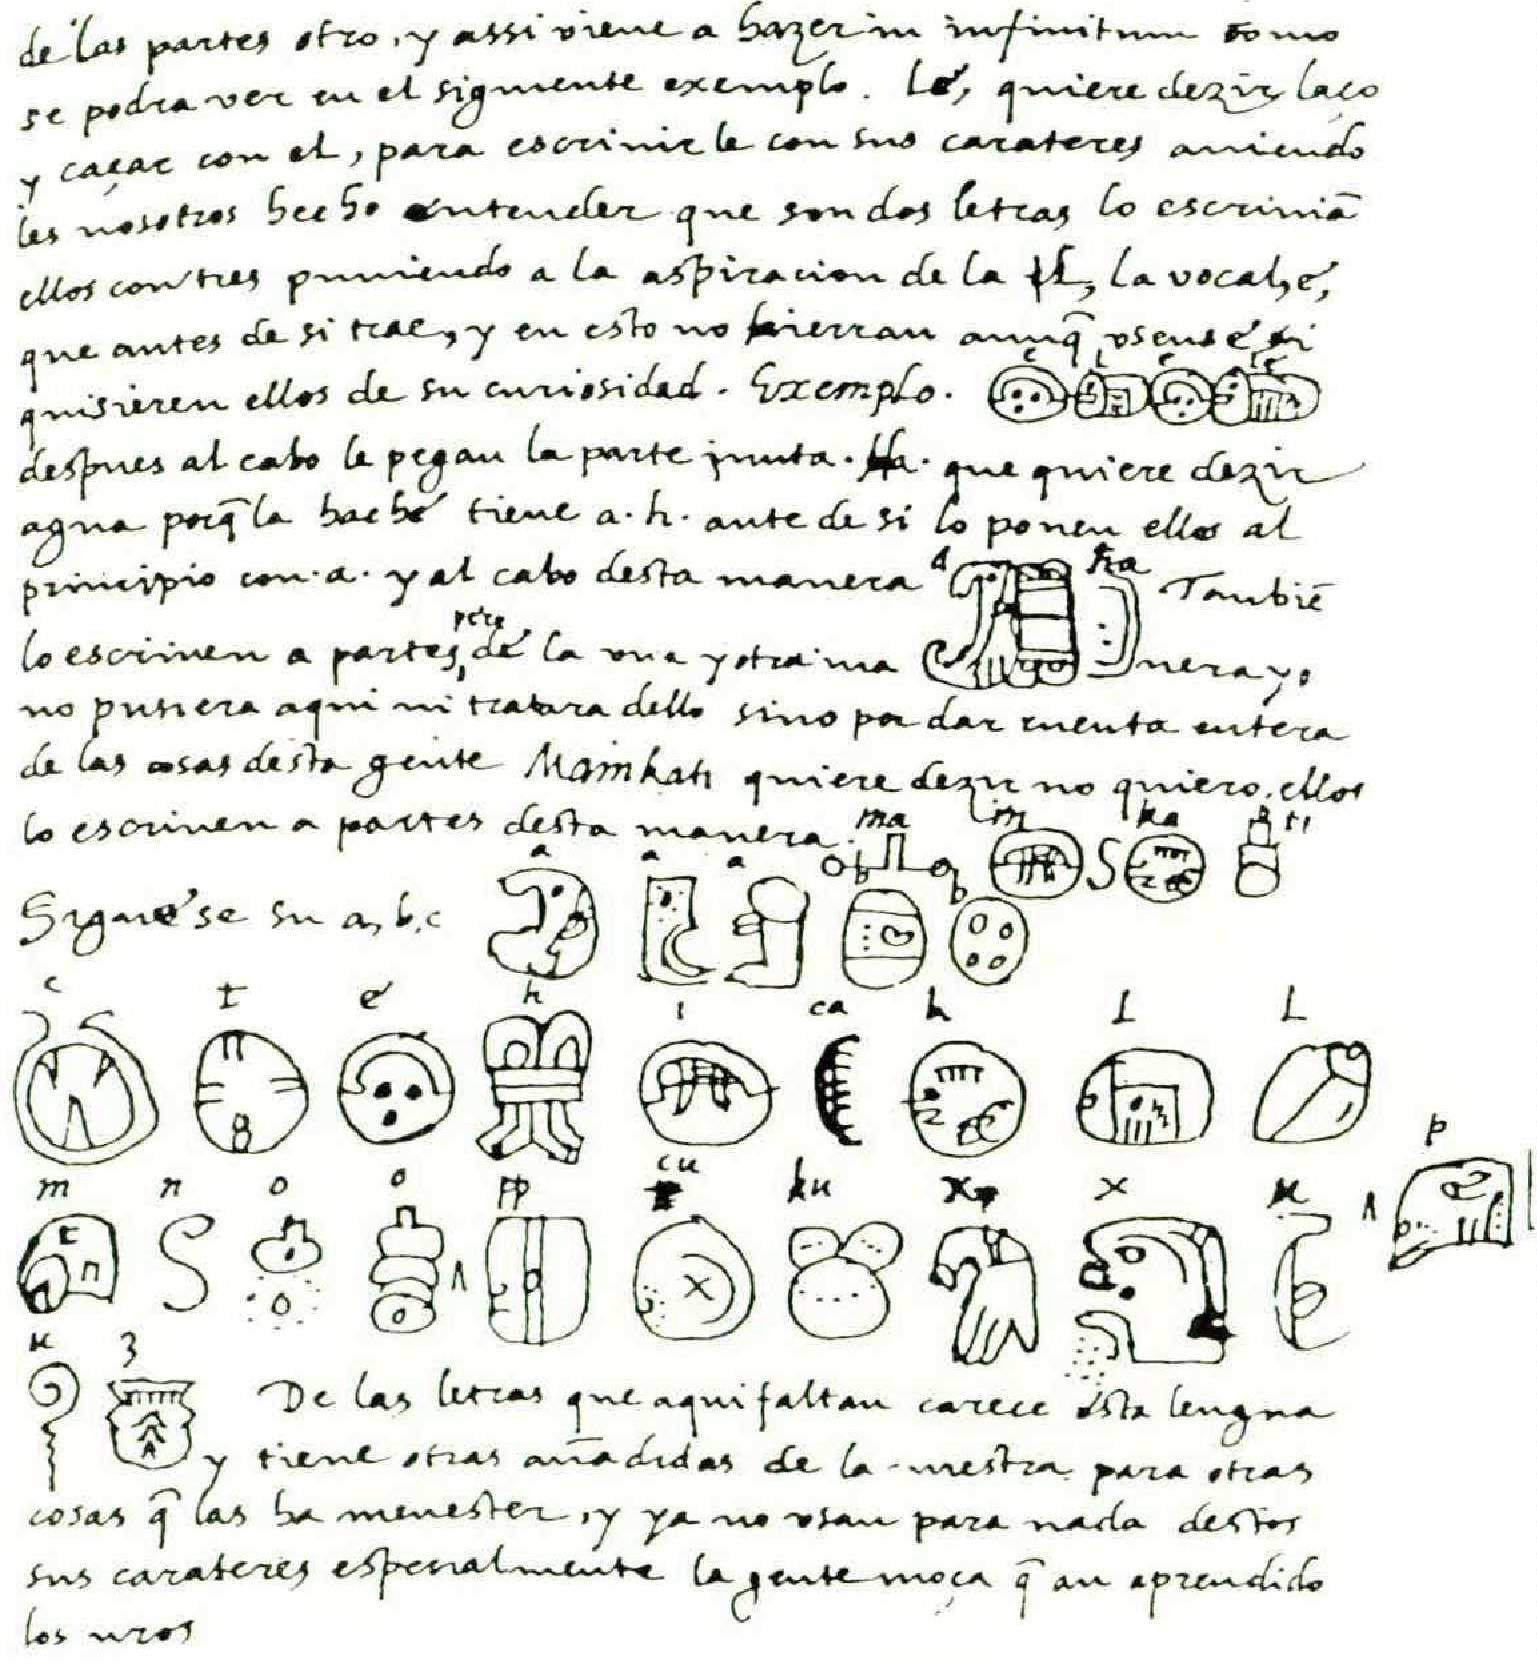 de las partes otro, y assi viene a hazer in infinitum como
se podra ver en el siguiente exemplo. Lé, quiere dezir laço
y caçar con el, para escrivirle con sus carateres aviendo
les nosotros hecho entender que son dos letras lo escriviā
ellos con tres puniendo a la aspiracion de la l, la vocal, é,
que antes de si trae, y en esto no hierran aunq̃ usense
quisieren ellos de su curiosidad. Exemplo. e L e Lé
despues al cabo le pegan la parte junta. Ha. que quiere dezir
agua porq̃ la hache tiene a. h. ante de si lo ponen ellos al
principio con. a. y al cabo desta manera a ha Tambiē
lo escriven a partes, pero de la una y otra ma nera yo
no pusiera aqui ni tratara dello sino por dar cuenta entera
de las cosas desta gente Mainkati quiere dezir no quiero, ellos
lo escriven a partes desta manera. ma in ka ti
Siguese su a, b, c a a a b b
c t é h i ca k l L
m n o o pp cu ku x x u p
u z De las letras que aqui faltan carece esta lengua
y tiene otras añadidas de la nuestra para otras
cosas q̃ las ha menester, y ya no usan para nada destos
sus carateres espenialmente la gente moça q̃ an aprendido
los nros